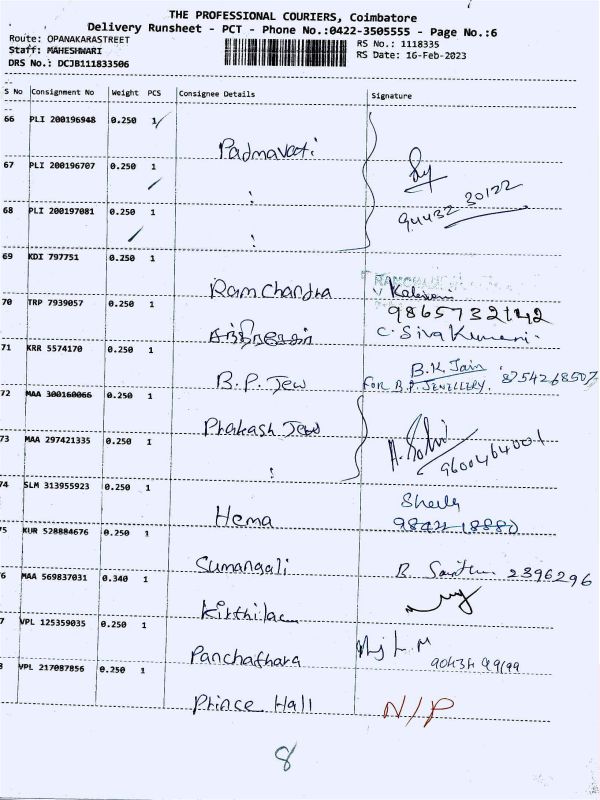 THE PROFESSIONAL COURIERS, Coimbatore
Delivery Runsheet - PCT - Phone No.:0422-3505555 - Page No.:6
Route: OPANAKARASTREET
Staff: MAHESHWARI
DRS No.: DCJB111833506
RS No.: 1118335
RS Date: 16-Feb-2023
S No Consignment No Weight PCS Consignee Details Signature
66 PLI 200196948 0.250 1
Padmavati
67 PLI 200196707 0.250 1
94432 30122
68 PLI 200197081 0.250 1
69 KDI 797751 0.250 1
Ram Chandra
70 TRP 7939057 0.250 1
9865732142
C. Siva Kumari.
71 KRR 5574170 0.250 1
B.P. Jew
B.K. Jain
FOR B.P. JEWELLERY. 8754268507
72 MAA 300160066 0.250 1
Prakash Jew
73 MAA 297421335 0.250 1
9600464001
74 SLM 313955923 0.250 1
Hema
75 KUR 528884676 0.250 1
Sumangali
2396296
6 MAA 569837031 0.340 1
7 VPL 125359035 0.250 1
8 VPL 217087856 0.250 1
Prince Hall
N/P
8